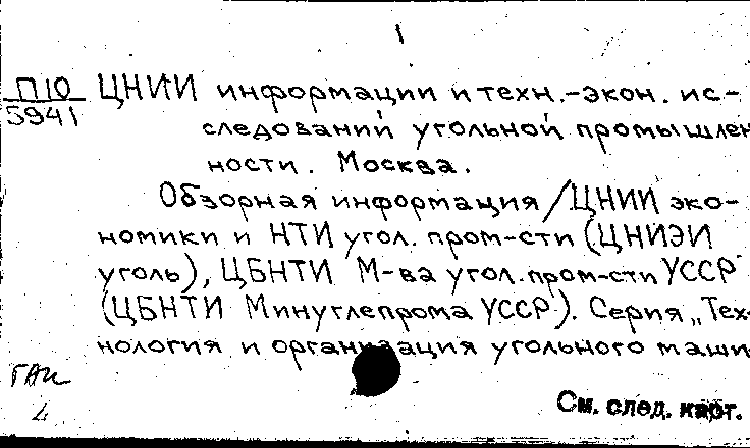 1
П10 ЦНИИ информации и техн.-экон. ис-
5941
следований угольной промышлен
ности. Москва.
Обзорная информация /ЦНИИ эко-
номики и НТИ угол. пром-сти (ЦНИЭИ
уголь), ЦБНТИ М-ва угол.пром-сти УССР
(ЦБНТИ Минуглепрома УССР). Серия „Тех-
нология и организация угольного маши
См. след. карт.